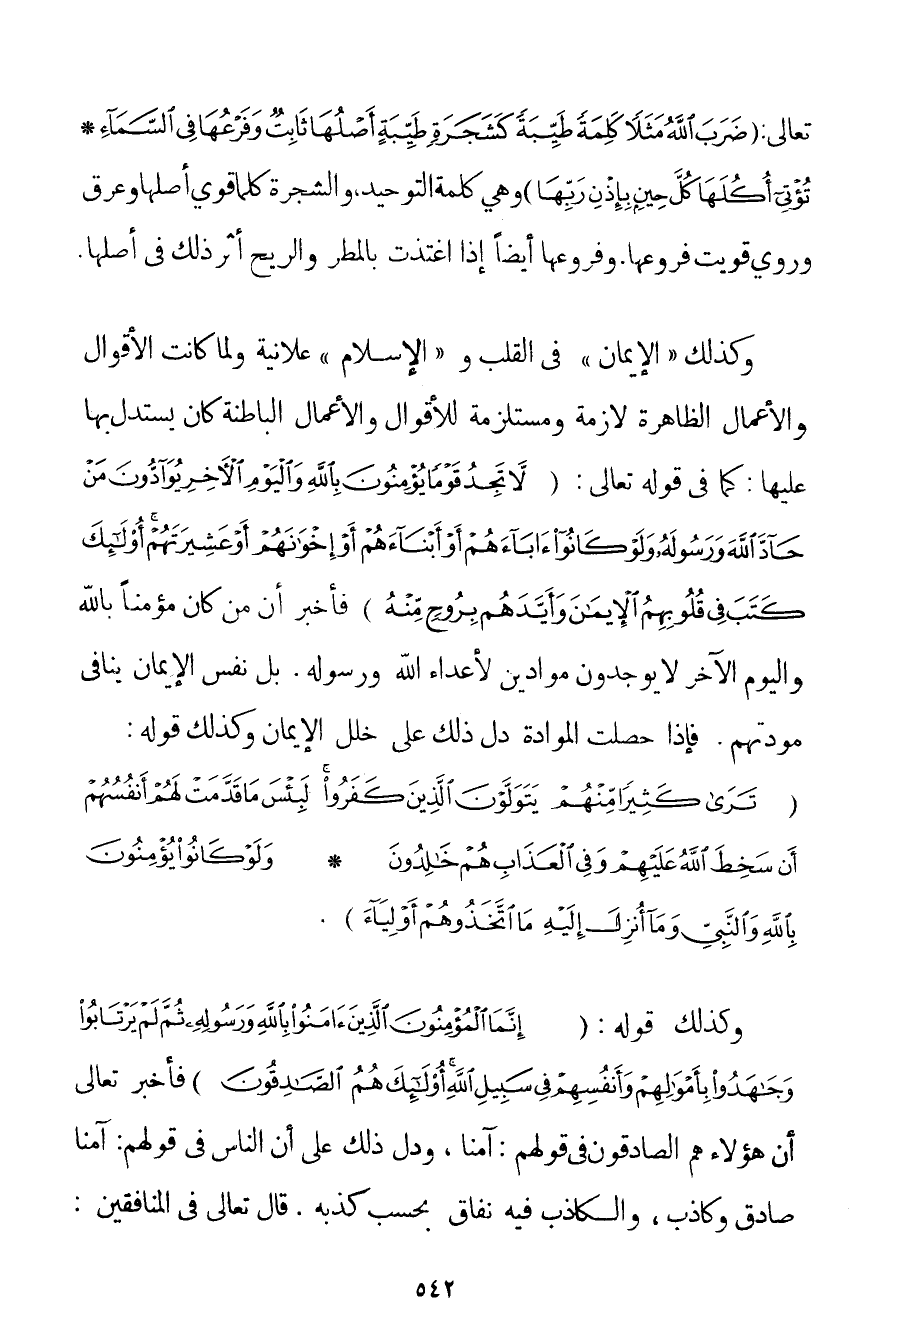 تعالى: ( ضَرَبَ ٱللَّهُ مَثَلًا كَلِمَةً طَيِّبَةً كَشَجَرَةٍ طَيِّبَةٍ أَصْلُهَا ثَابِتٌ وَفَرْعُهَا فِى ٱلسَّمَآءِ *
تُؤْتِىٓ أُكُلَهَا كُلَّ حِينٍۭ بِإِذْنِ رَبِّهَا ) وهي كلمة التوحيد، والشجرة كلما قوي أصلها وعرق
وروي قويت فروعها. وفروعها أيضاً إذا اغتذت بالمطر والريح أثر ذلك فى أصلها.
وكذلك « الإيمان » فى القلب و « الإسلام » علانية ولما كانت الأقوال
والأعمال الظاهرة لازمة ومستلزمة للأقوال والأعمال الباطنة كان يستدل بها
عليها : كما فى قوله تعالى : ( لَّا تَجِدُ قَوْمًا يُؤْمِنُونَ بِٱللَّهِ وَٱلْيَوْمِ ٱلْأَخِرِ يُوَآدُّونَ مَنْ
حَآدَّ ٱللَّهَ وَرَسُولَهُۥ وَلَوْ كَانُوٓا۟ ءَابَآءَهُمْ أَوْ أَبْنَآءَهُمْ أَوْ إِخْوَٰنَهُمْ أَوْ عَشِيرَتَهُمْ ۚ أُو۟لَٰٓئِكَ
كَتَبَ فِى قُلُوبِهِمُ ٱلْإِيمَٰنَ وَأَيَّدَهُم بِرُوحٍ مِّنْهُ ) فأخبر أن من كان مؤمناً بالله
واليوم الآخر لا يوجدون موادين لأعداء الله ورسوله . بل نفس الإيمان ينافى
مودتهم . فإذا حصلت الموادة دل ذلك على خلل الإيمان وكذلك قوله :
( تَرَىٰ كَثِيرًا مِّنْهُمْ يَتَوَلَّوْنَ ٱلَّذِينَ كَفَرُوا۟ ۚ لَبِئْسَ مَا قَدَّمَتْ لَهُمْ أَنفُسُهُمْ
أَن سَخِطَ ٱللَّهُ عَلَيْهِمْ وَفِى ٱلْعَذَابِ هُمْ خَٰلِدُونَ * وَلَوْ كَانُوا۟ يُؤْمِنُونَ
بِٱللَّهِ وَٱلنَّبِىِّ وَمَآ أُنزِلَ إِلَيْهِ مَا ٱتَّخَذُوهُمْ أَوْلِيَآءَ ) .
وكذلك قوله : ( إِنَّمَا ٱلْمُؤْمِنُونَ ٱلَّذِينَ ءَامَنُوا۟ بِٱللَّهِ وَرَسُولِهِۦ ثُمَّ لَمْ يَرْتَابُوا۟
وَجَٰهَدُوا۟ بِأَمْوَٰلِهِمْ وَأَنفُسِهِمْ فِى سَبِيلِ ٱللَّهِ ۚ أُو۟لَٰٓئِكَ هُمُ ٱلصَّٰدِقُونَ ) فأخبر تعالى
أن هؤلاء هم الصادقون فى قولهم : آمنا ، ودل ذلك على أن الناس فى قولهم: آمنا
صادق وكاذب ، والكاذب فيه نفاق بحسب كذبه . قال تعالى فى المنافقين :
٥٤٢